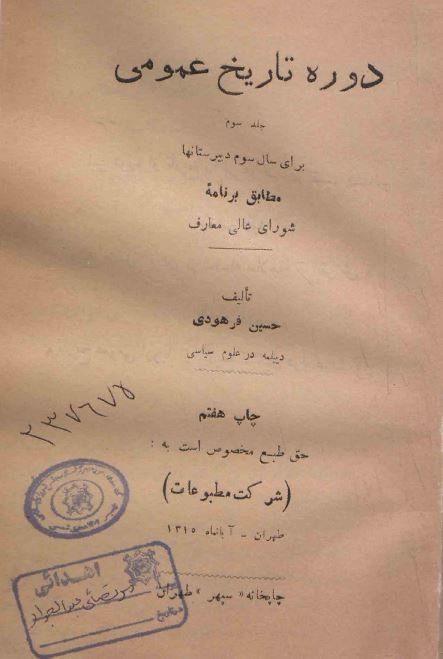 دوره تاریخ عمومی
جلد سوم
برای سال سوم دبیرستانها
مطابق برنامهٔ
شورای عالی معارف
تألیف
حسین فرهودی
دیپلمه در علوم سیاسی
چاپ هفتم
حق طبع مخصوص است به :
(شرکت مطبوعات)
طهران - آبانماه ۱۳۱۵
چاپخانه «سپهر» طهران
۲۳۷۶۷۵
اهدائی
تاریخ